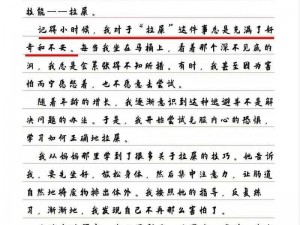 技能——拉屎。
记得小时候，我对于“拉屎”这件事总是充满了好
奇和不安。每当我坐在马桶上，看着那个深不见底的
洞，我总是会紧张得不知所措。有时，我甚至因为害
怕而宁愿憋着，也不愿意去尝试。
随着年龄的增长，我逐渐意识到这种逃避并不是解
决问题的办法。于是，我开始尝试克服内心的恐惧，
学习如何正确地拉屎。
我从妈妈那里学到了很多关于拉屎的技巧。他告诉
我，要先坐稳，放松，然后集中注意力，让肠道
自然地将废物排出体外。我按照他的指导，反复练
习，渐渐地，我发现自己不再那么害怕了。